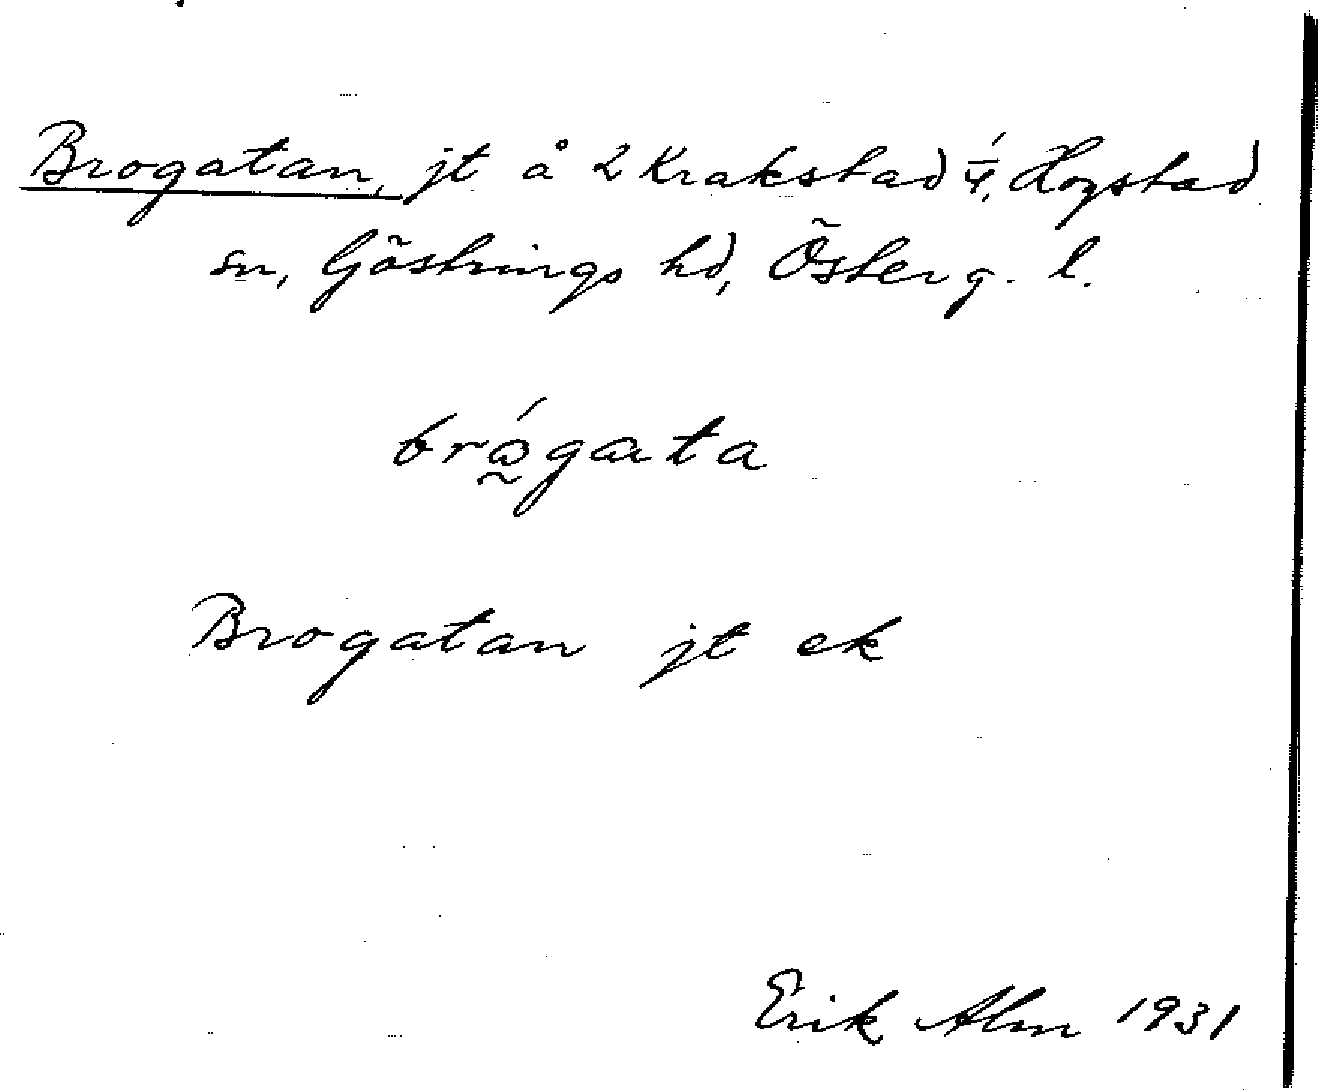 Brogatan, jt å 2 Krakstad 1/4, Hogstad
sn, Göstrings hd, Österg. l.
brógata
Brogatan jt ek
Erik Alm 1931